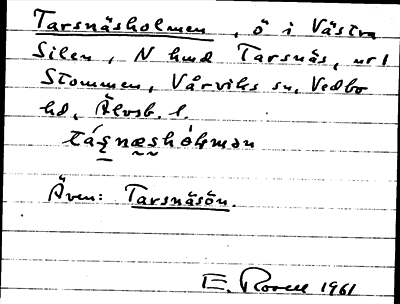 Tarsnäsholmen, ö i Västra
Silen, N hmd Tarsnäs, nr 1
Stommen, Vårviks sn, Vedbo
hd, Älvsb. l.
Även: Tarsnäsön.
E. Rosell 1961